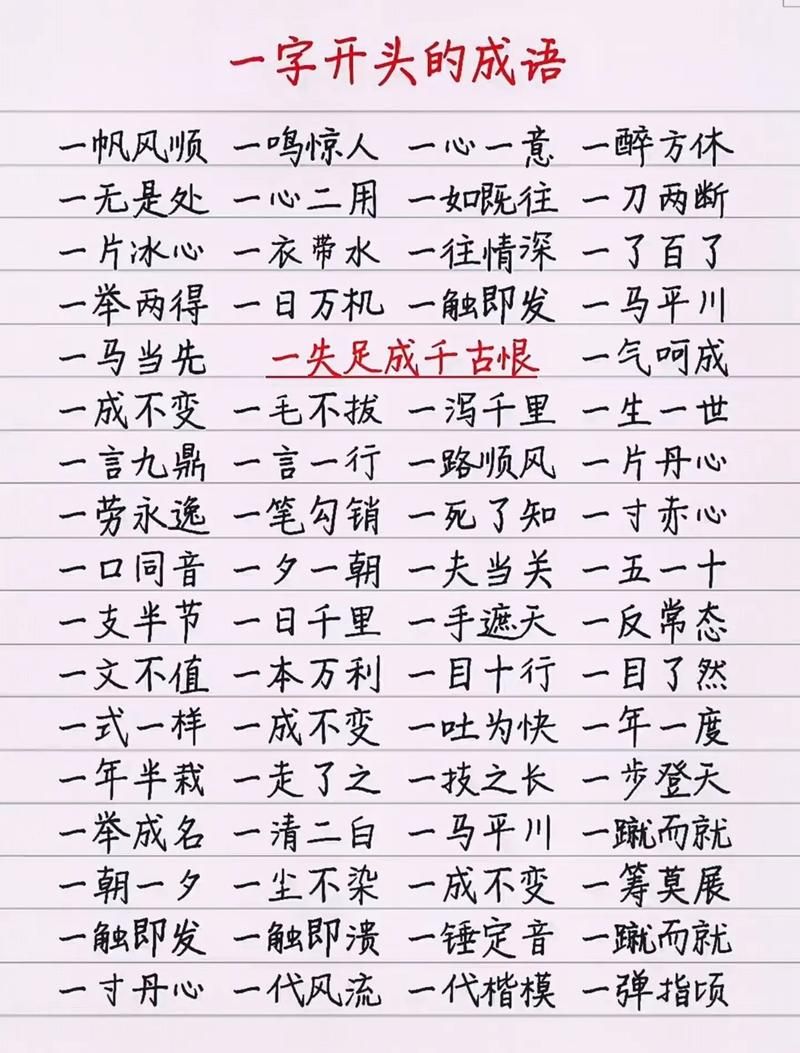 一字开头的成语
一帆风顺 一鸣惊人 一心一意 一醉方休
一无是处 一心二用 一如既往 一刀两断
一片冰心 一衣带水 一往情深 一了百了
一举两得 一日万机 一触即发 一马平川
一马当先 一失足成千古恨 一气呵成
一成不变 一毛不拔 一泻千里 一生一世
一言九鼎 一言一行 一路顺风 一片丹心
一劳永逸 一笔勾销 一死了知 一寸赤心
一口同音 一夕一朝 一夫当关 一五一十
一支半节 一日千里 一手遮天 一反常态
一文不值 一本万利 一目十行 一目了然
一式一样 一成不变 一吐为快 一年一度
一年半载 一走了之 一技之长 一步登天
一举成名 一清二白 一马平川 一蹴而就
一朝一夕 一尘不染 一成不变 一筹莫展
一触即发 一触即溃 一锤定音 一蹴而就
一寸丹心 一代风流 一代楷模 一弹指顷